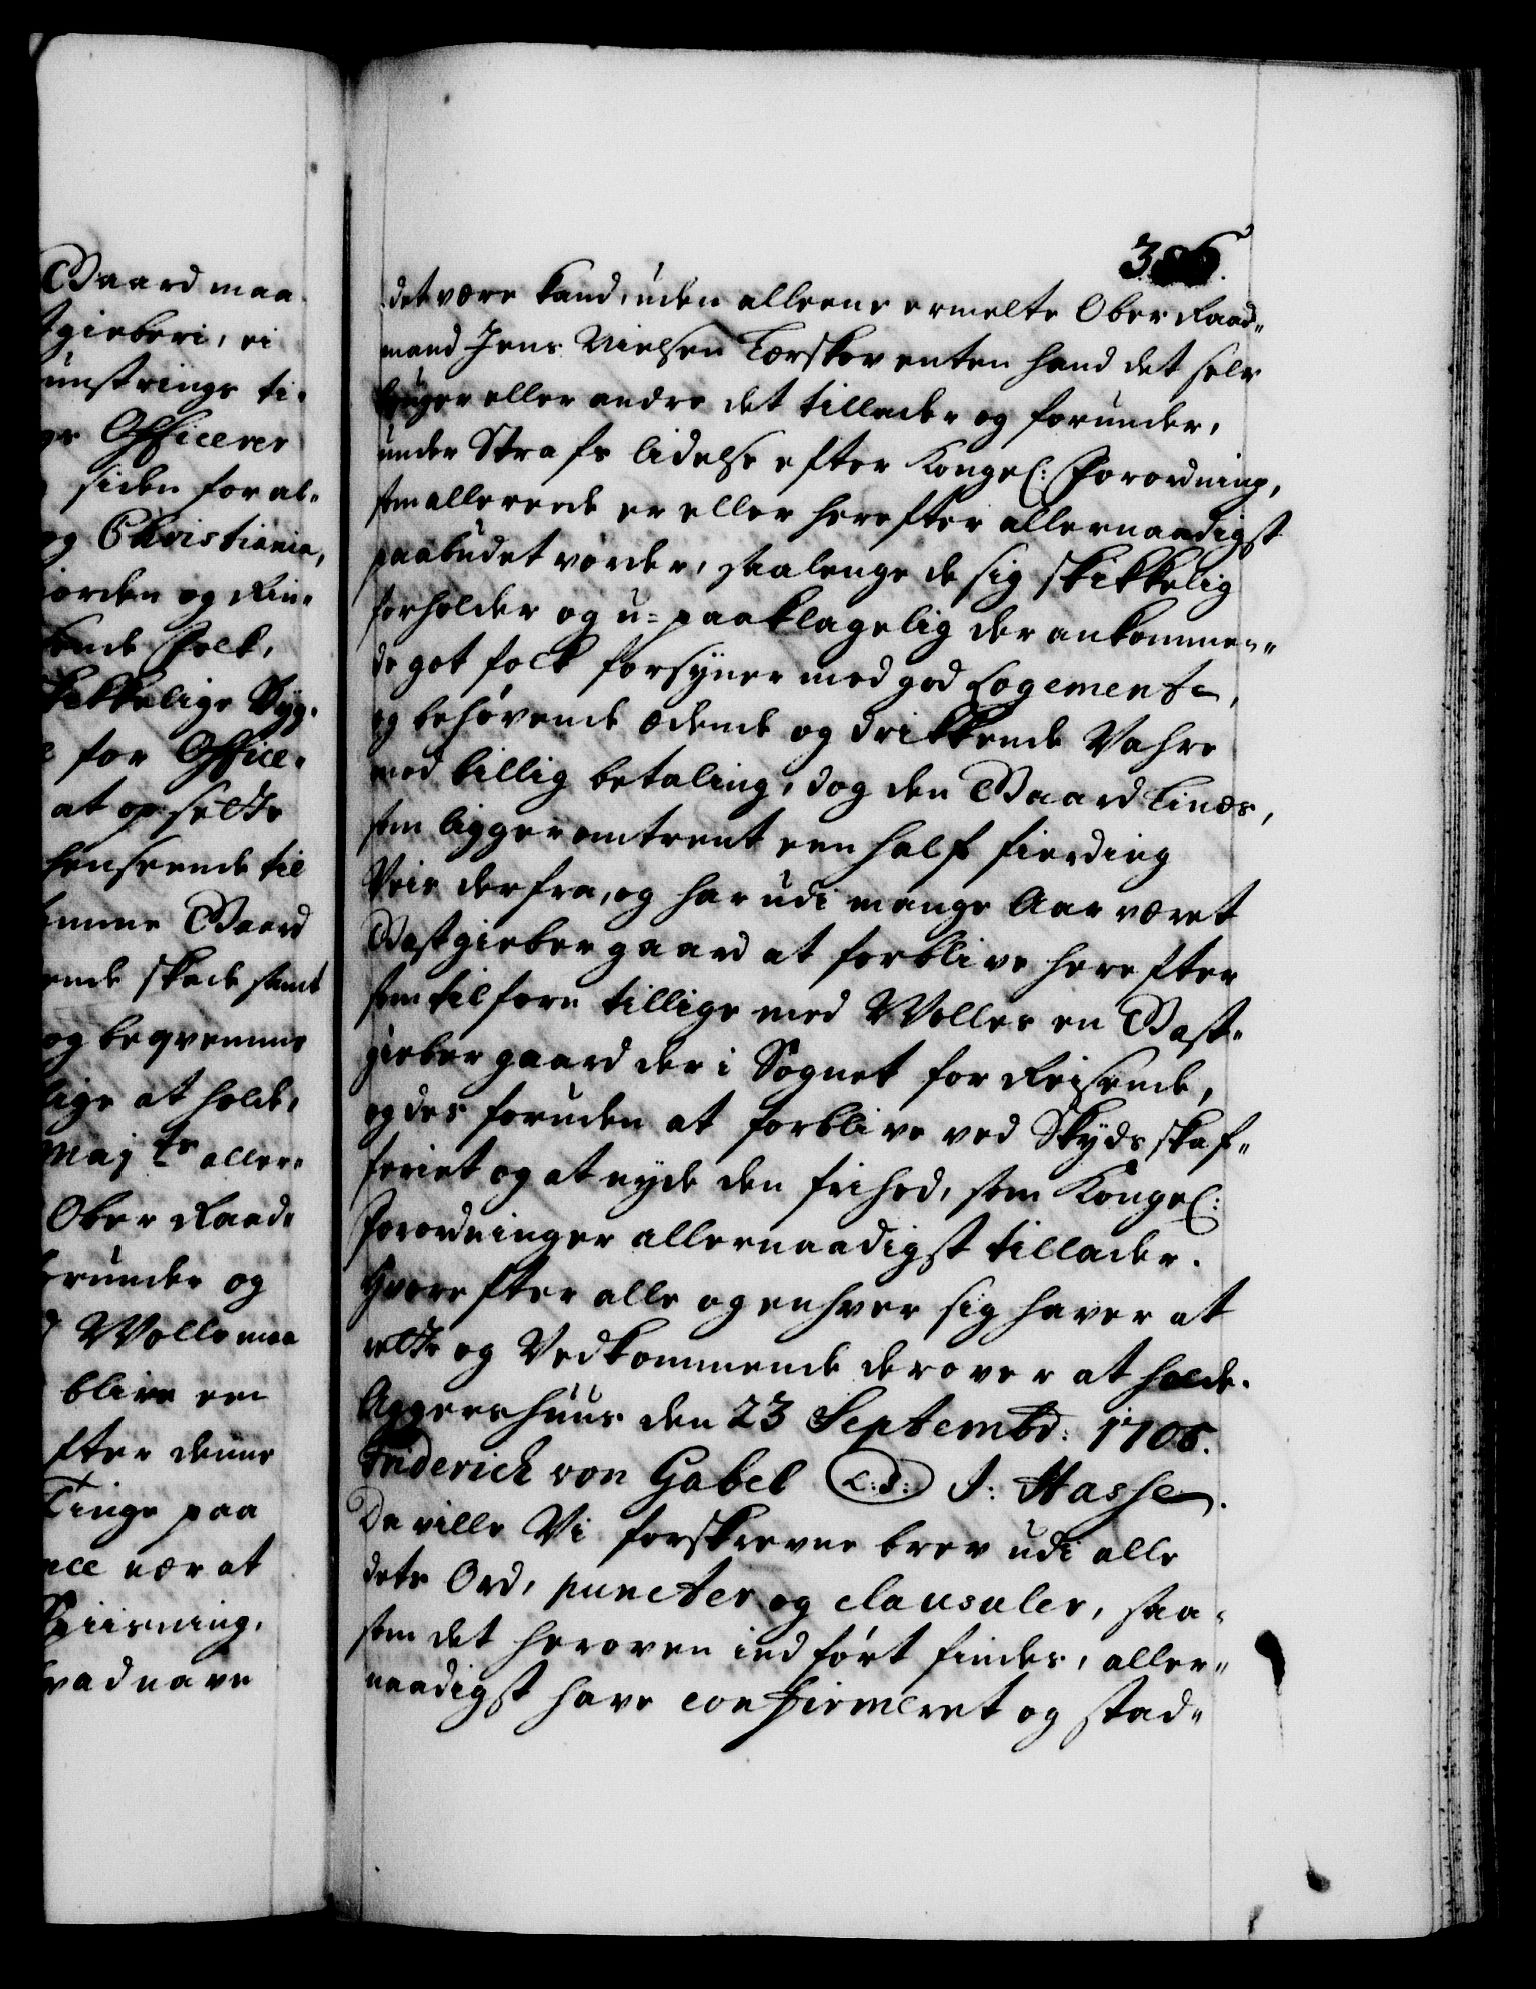 Gaard maa
tgieberi, ei
unstrings ti-
ge Officerer
siden for al-
og Christiania,
jorden og Rin-
kende Folk,
skikkelige Byg-
for Office-
at opsette
henseende til
denne Gaard
ende skade samt
og beqvemme
lige at holde,
Maj.ts aller-
Ober Raad-
forunder og
Wolle maa
blive een
efter denne
Tinge paa
nce nær at
Spiisning,
hvad navn
386.
det være kand, uden alleene ermelte Ober Raad-
mand Jens Nielsen Torskov enten hand det selv
bruger eller andre det tillader og forunder,
under Strafs lidelse efter Kongel: Forordning,
som allereede er eller herefter allernaadigst
paabudet vorder, saalenge de sig skikkelig
forholder og u-paaklagelig der ankommen-
de got folk forsyner med god Logemente,
og behøvende ædende og drikkende Vahre
med billig betaling, dog den Gaard Linæs,
som ligger omtrent een half fierding
Veis derfra, og har udi mange Aar været
Gastgiebergaard at forblive herefter
som tilforn tillige med Wolles en Gast-
giebergaard der i Sognet for Reisende,
og des foruden at forblive ved Skyds skaf-
feriet og at nyde den frihed, som Kongel:
Forordninger allernaadigst tillader.
Hvorefter alle og enhver sig haver at
rette og Vedkommende derover at holde.
Aggershuus den 23 Septembr: 1706.
Friderich von Gabel (L:S:) J: Hasse.
Da ville Vi forskrevne brev udi alle
dets Ord, puncter og clausuler, saa-
som det heroven indført findes, aller-
naadigst have confirmeret og stad-